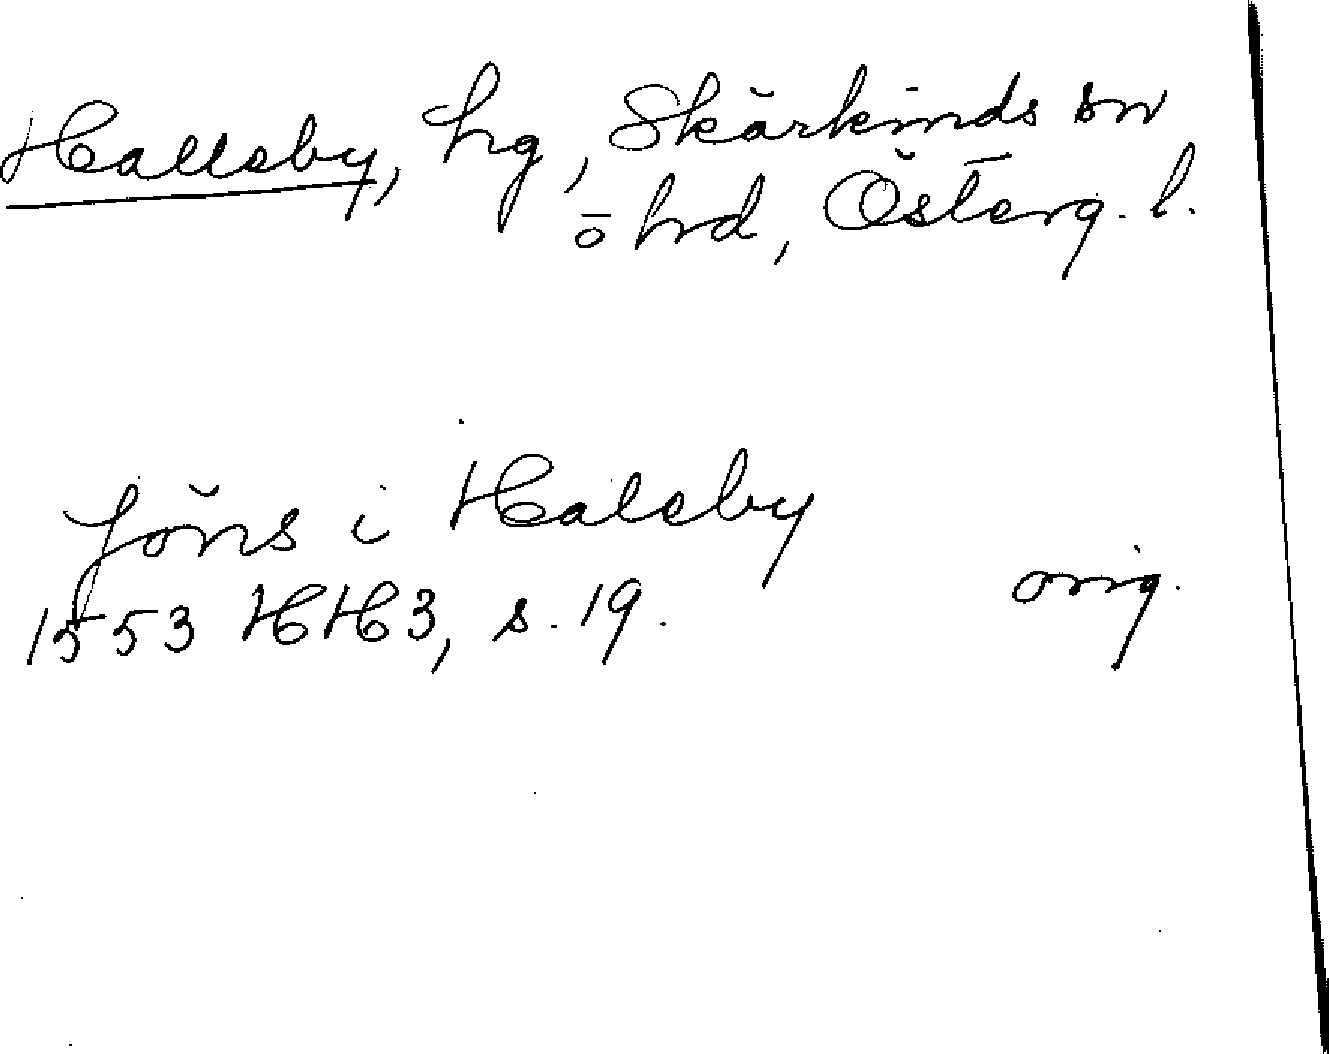 Hallsby, hg, Skärkinds sn
o hrd, Österg. l.
Jöns i Halsby
1553 HH3, s. 19. orig.